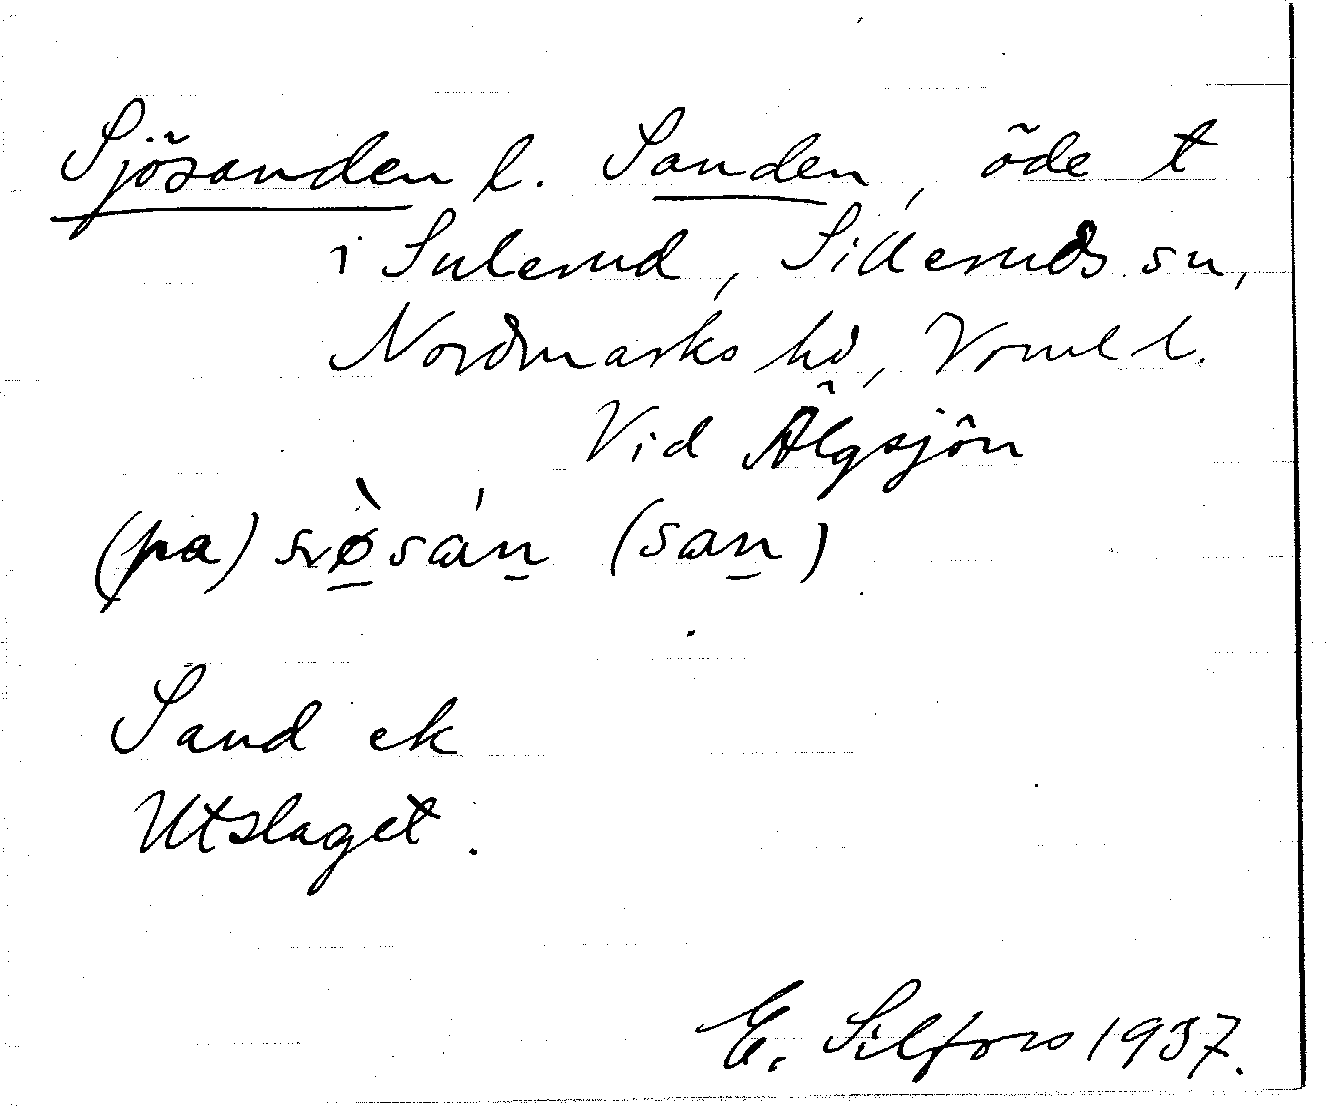 Sjösanden l. Sanden, öde t
i Sulerud, Silleruds sn,
Nordmarks hd, Vrml l.
Vid Älgsjön
(pa) sɤø̀sán (san)
Sand ek
Utslaget.
E. Silfors 1937.